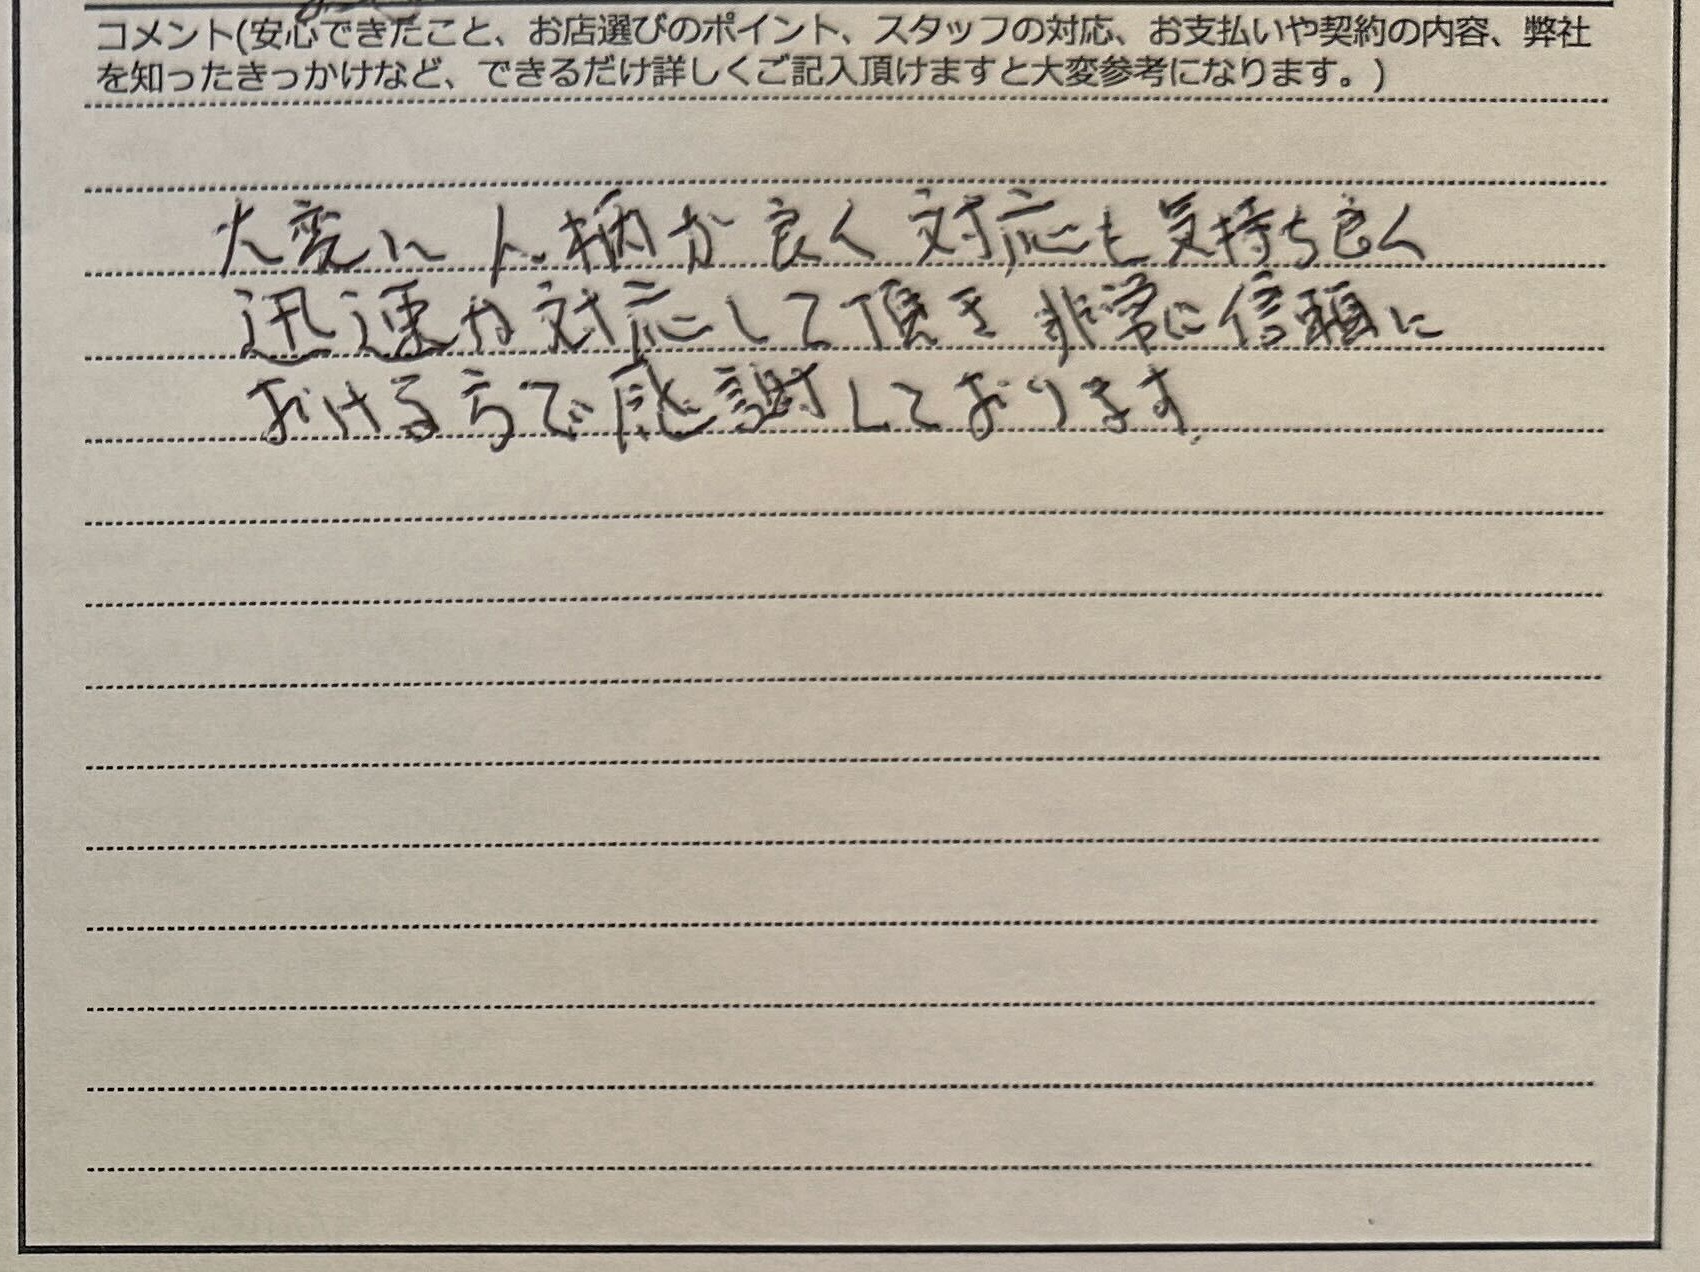 コメント(安心できたこと、お店選びのポイント、スタッフの対応、お支払いや契約の内容、弊社
を知ったきっかけなど、できるだけ詳しくご記入頂けますと大変参考になります。)
大変に人柄が良く対応も気持ち良く
迅速な対応して頂き非常に信頼に
おける方で感謝しております。